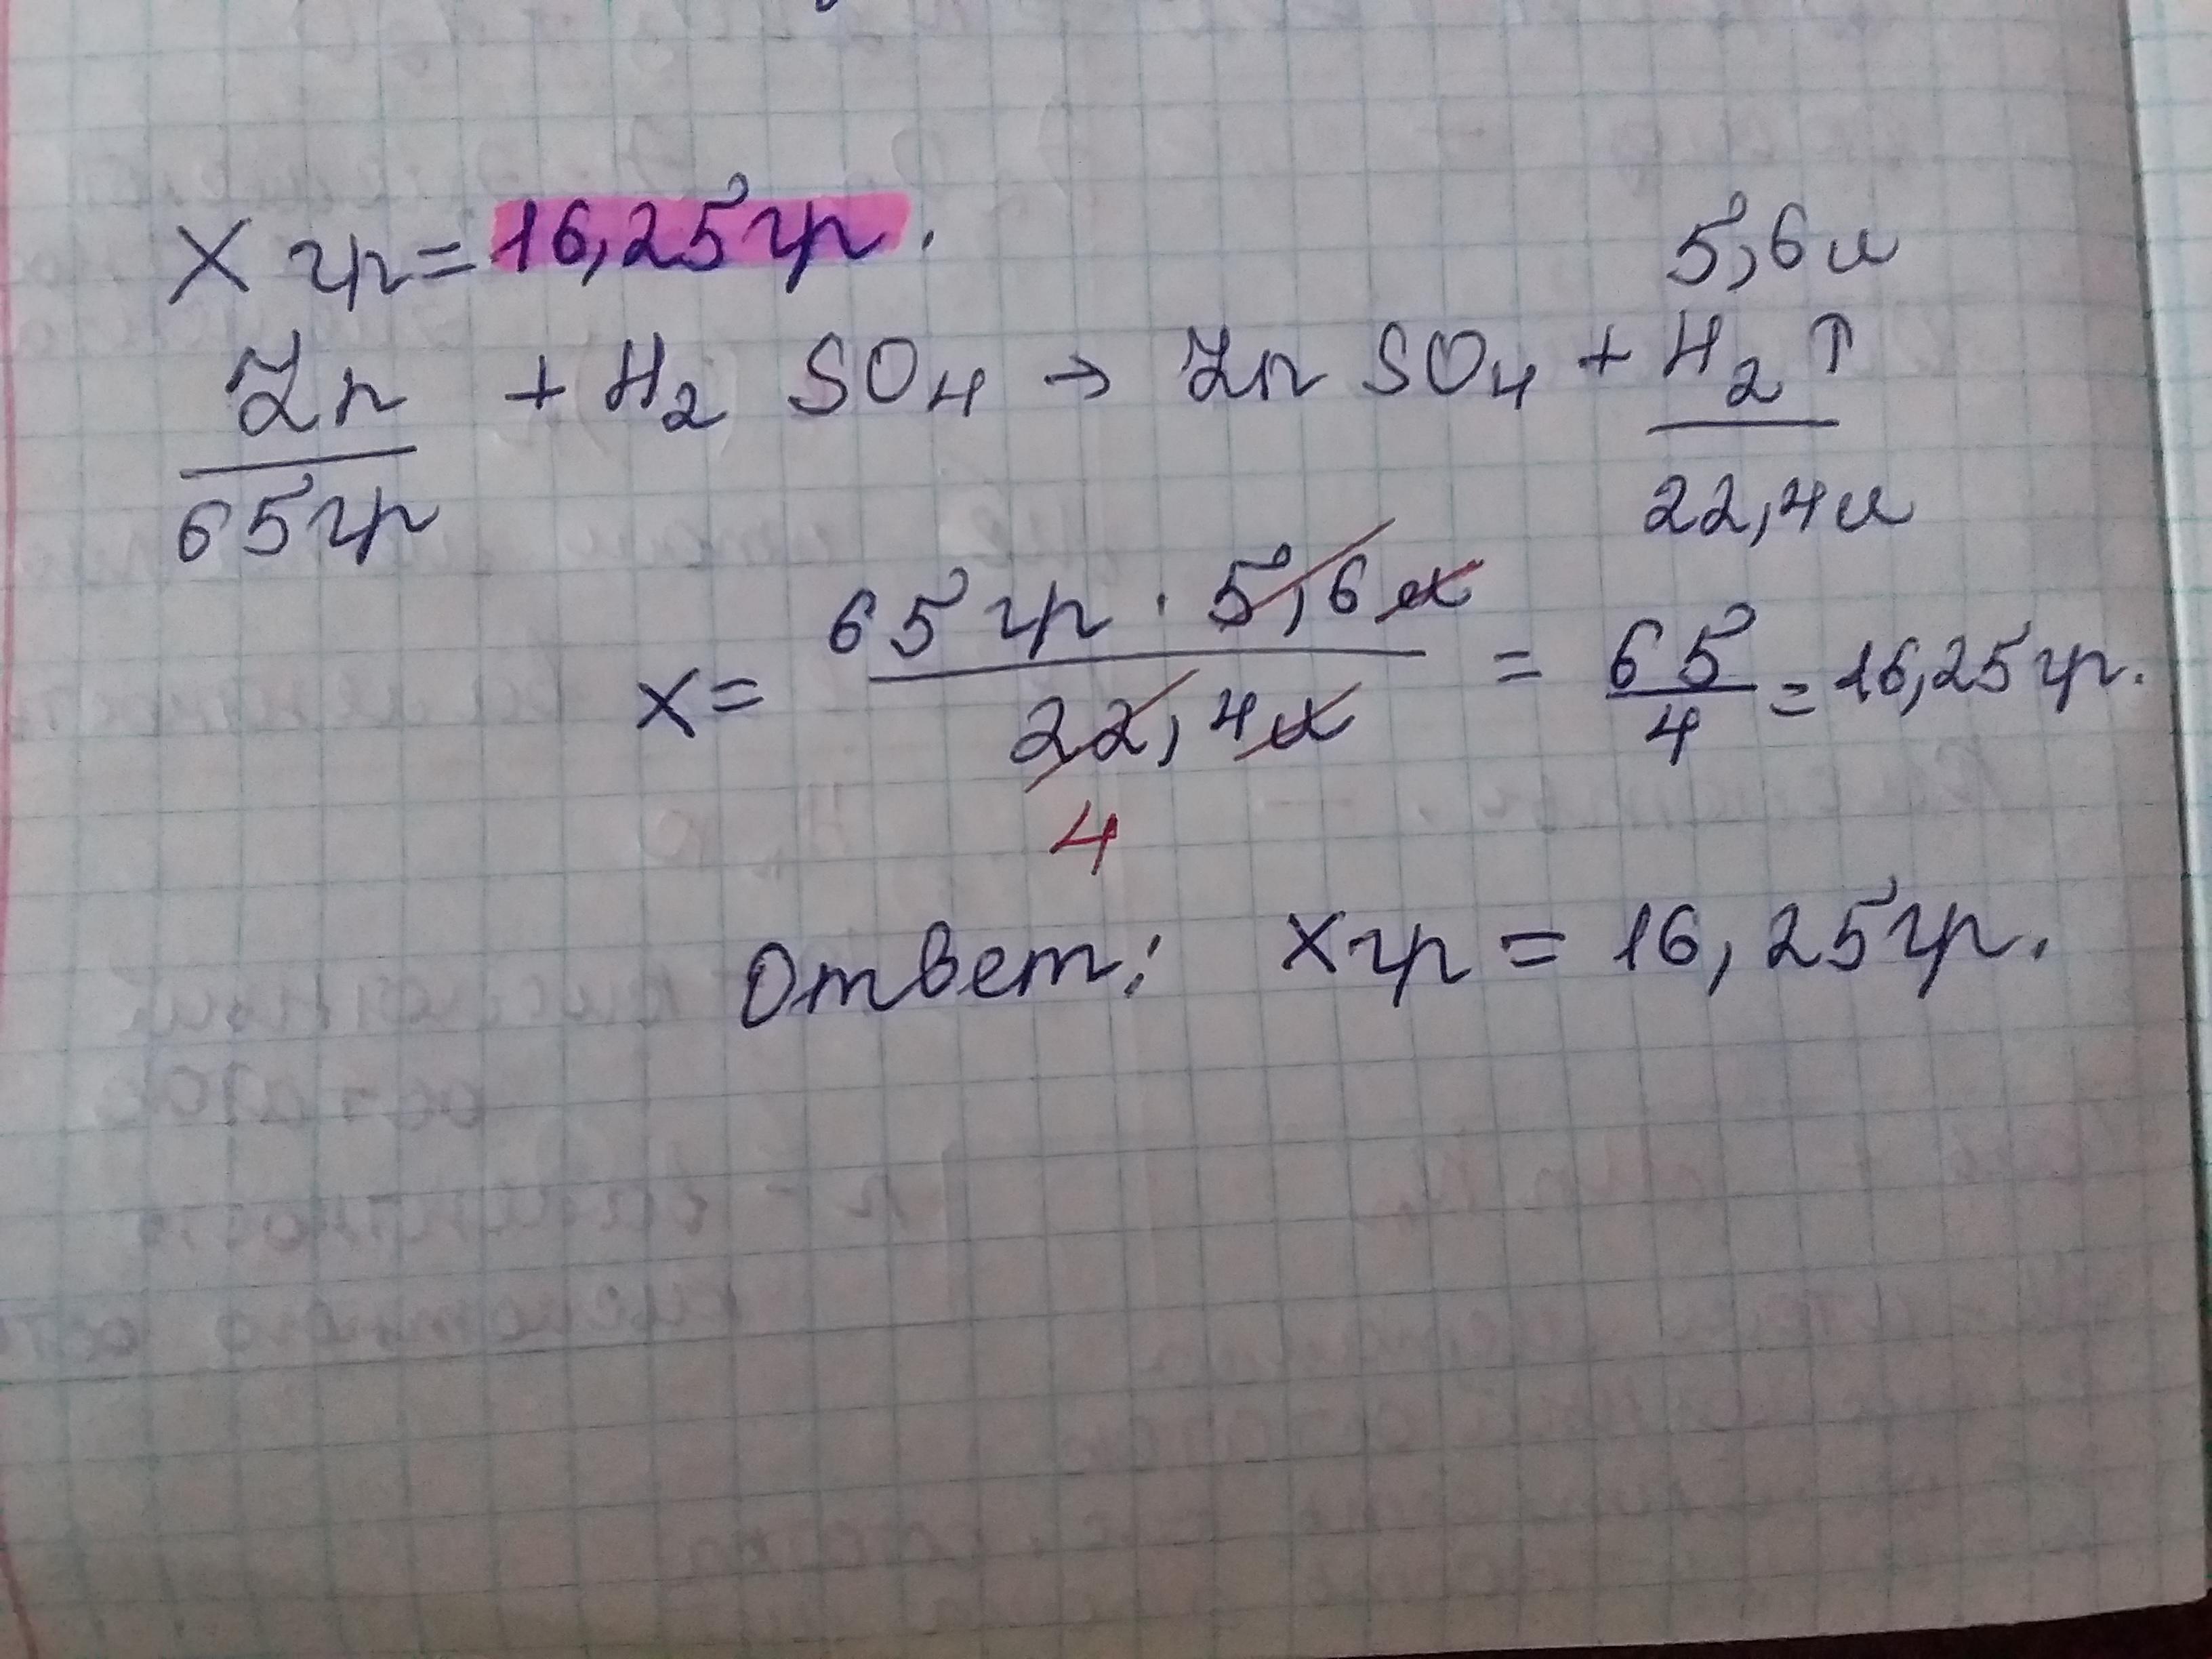 X гр = 16,25 гр.
5,6 л
Zn + H₂SO₄ → ZnSO₄ + H₂↑
65 гр
22,4 л
x = 65 гр · 5,6 л / 22,4 л = 65/4 = 16,25 гр.
4
Ответ: X гр = 16,25 гр.